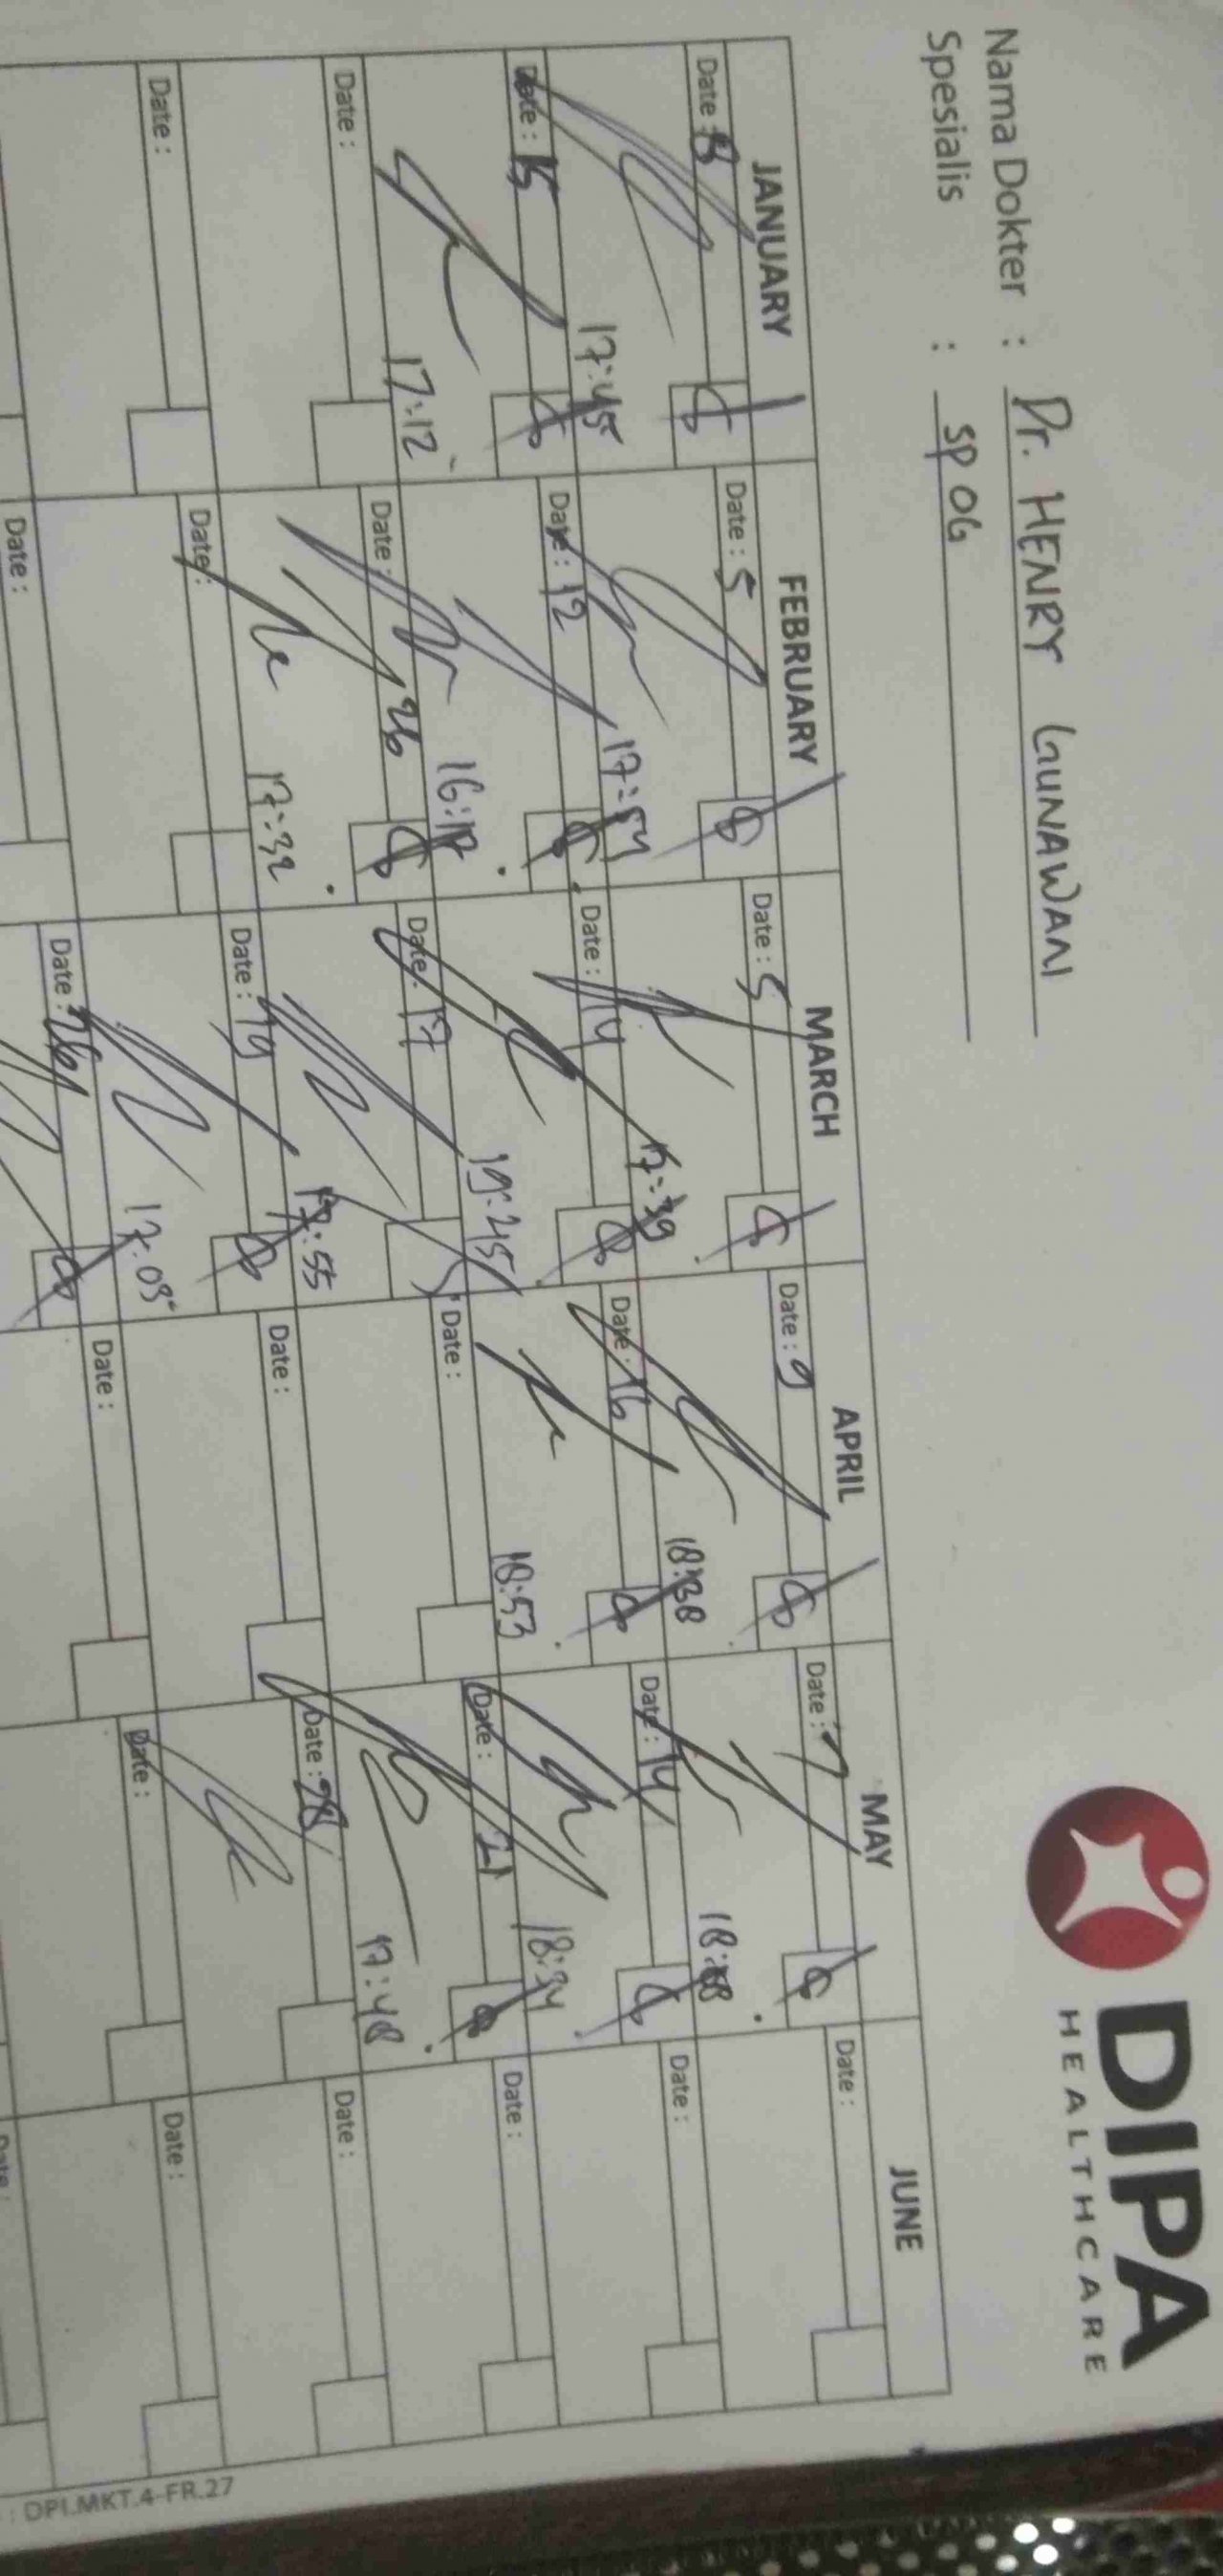 DIPA
HEALTHCARE
Nama Dokter : Dr. HENRY GUNAWAN
Spesialis : SPOG
JANUARY FEBRUARY MARCH APRIL MAY JUNE
Date : Date : 5 Date : 5 Date : 9 Date : 7 Date :
17:45 17:54 17:39 18:38 18:
Date : 15 Date : 12 Date : 14 Date : 16 Date : 14 Date :
17:12 16: 19:25 18:53 18:34
Date : Date : 26 Date : 17 Date : Date : 21 Date :
17:32 :55 17:48
Date : Date : Date : 19 Date : Date : 28 Date :
17:09
Date : Date : 26 Date : Date : Date :
Date :
: DPI.MKT.4-FR.27